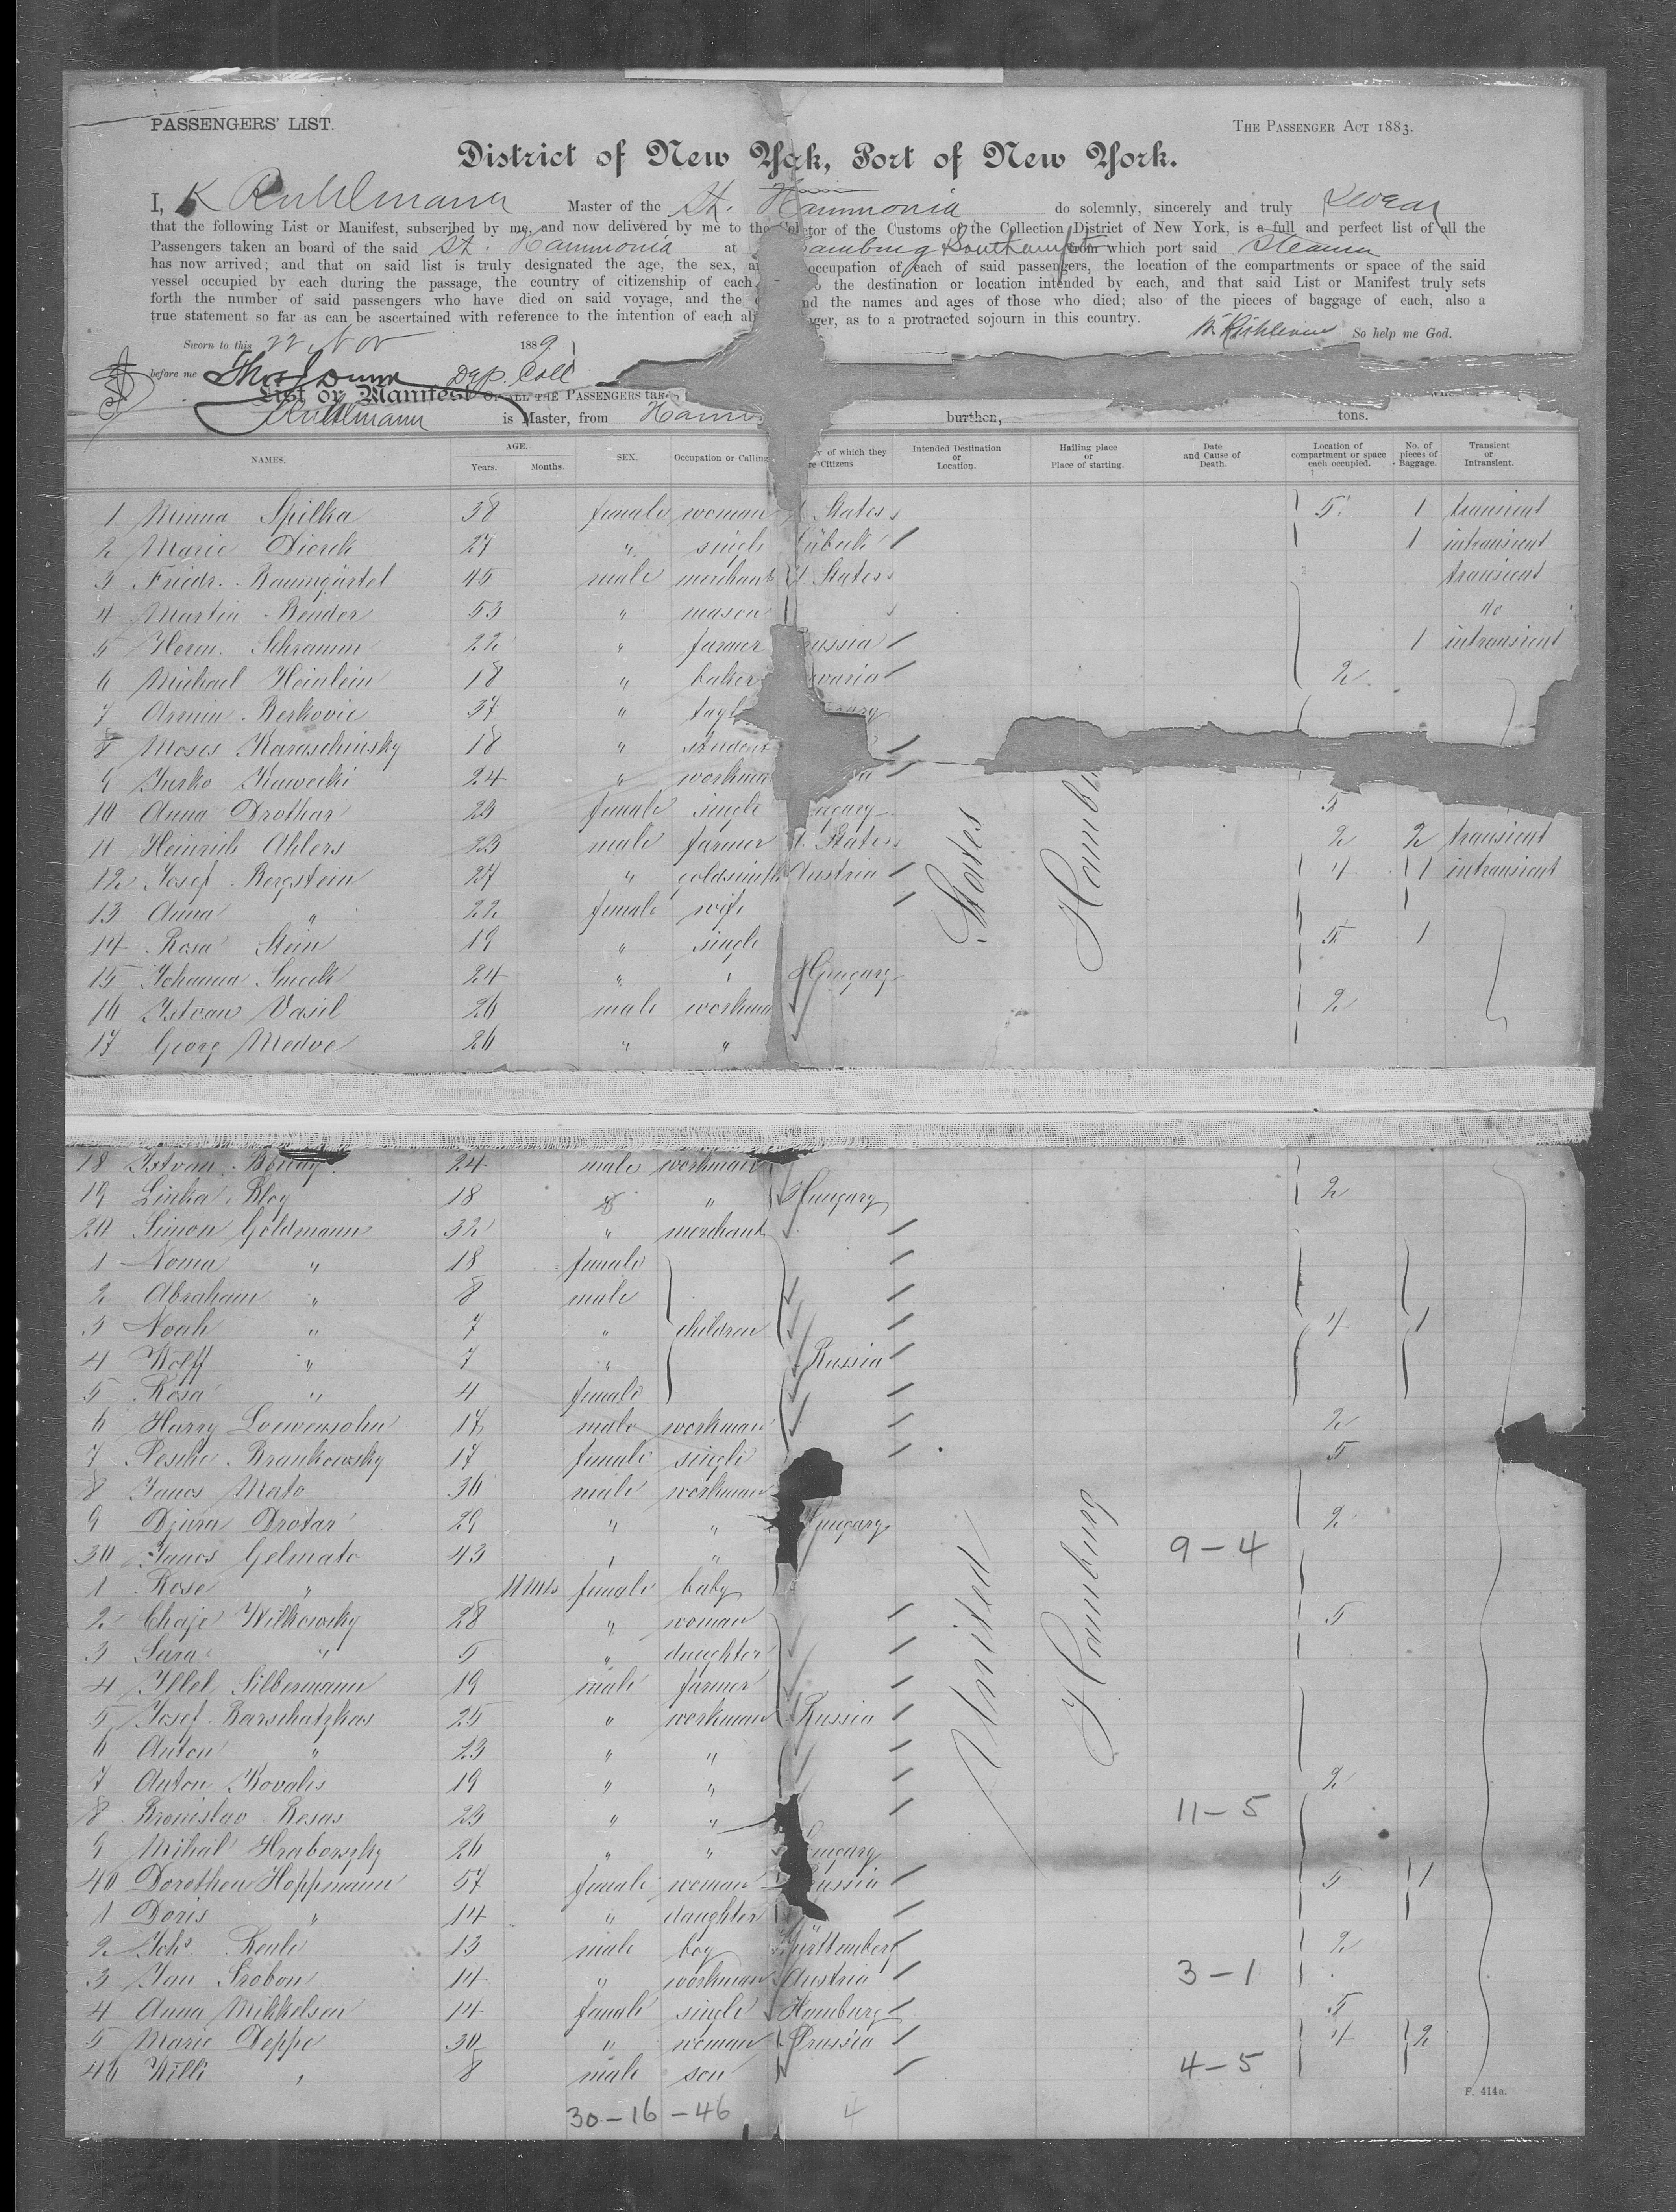 PASSENGERS' LIST.
THE PASSENGER ACT 1883.
District of New York, Port of New York.
I, K Ruhlmann Master of the St. Hammonia do solemnly, sincerely and truly swear
that the following List or Manifest, subscribed by me, and now delivered by me to the Collector of the Customs of the Collection District of New York, is a full and perfect list of all the
Passengers taken on board of the said St. Hammonia at Hamburg from which port said Steamer
has now arrived; and that on said list is truly designated the age, the sex, occupation of each of said passengers, the location of the compartments or space of the said
vessel occupied by each during the passage, the country of citizenship of each, the destination or location intended by each, and that said List or Manifest truly sets
forth the number of said passengers who have died on said voyage, and the and the names and ages of those who died; also of the pieces of baggage of each, also a
true statement so far as can be ascertained with reference to the intention of each as to a protracted sojourn in this country.
So help me God.
Sworn to this 22 Nov 1889
before me Dep. Coll
List or Manifest OF ALL THE PASSENGERS
Ruhlmann is Master, from burthen, tons.
NAMES. AGE. Years. Months. SEX. Occupation or Calling of which they are Citizens Intended Destination or Location. Hailing place or Place of starting. Date and Cause of Death. Location of compartment or space each occupied. No. of pieces of Baggage. Transient or Intransient.
1 Minna Spilka 38 female woman States 5 1 transient
2 Marie Dierck 27 " single Lübeck 1 intransient
3 Friedr. Baumgärtel 45 male merchant States transient
4 Martin Bender 53 " mason do
5 Herm. Schramm 22 " farmer 1 intransient
6 Michael Heinlein 18 " baker Bavaria 2
7 Armin Berkovic 37 "
8 Moses Karaschinsky 18 " student
9 Jurko Kawecki 24 " workman
10 Anna Drothar 23 female single 5
11 Heinrich Ahlers 23 male farmer States 2 2 transient
12 Josef Bergstein 27 " goldsmith Austria 4 1 intransient
13 Anna " 22 female wife
14 Rosa Stein 19 " single 5 1
15 Johanna 24 " " Hungary
16 Istvan Vasil 26 male workman 2
17 Georg Medve 26 " "
States
Hamburg
18 Istvan 24 male workman
19 Linka 18 " Hungary 2
20 Simon Goldmann 32 " merchant
1 Noma " 18 female
2 Abraham " 8 male
3 Noah " 7 " children 4 1
4 Wolff " 7 " Russia
5 Rosa " 4 female
6 Harry Loewensohn 17 male workman 2
7 Peshe Brankowsky 17 female single 5
8 Janos Mato 36 male workman
9 Djura Drotar 29 " " Hungary 2
9-4
30 Janos Gelmato 43 " "
1 Rose " 11 mts female baby
2 Chaje Wilkowsky 28 " woman 5
3 Sara " 5 " daughter
4 Silbermann 19 male farmer
5 Josef Barschatzkas 25 " workman Russia
6 Anton " 23 " "
7 Anton Kovalis 19 " " 2
8 Bronislav Resas 23 " "
11-5
9 Mihal Hraborszky 26 " " Hungary
40 Dorothea Hoppmann 57 female woman 5 1
1 Doris " 14 " daughter
2 Joh's 13 male boy Württemberg 2
3 Jan Srobon 14 " workman Austria
3-1
4 Anna Mikkelsen 14 female single Hamburg 5
5 Marie Deppe 30 " woman Prussia 4 2
46 Willi " 8 male son
4-5
United
Hamburg
F. 414a.
30-16-46 4